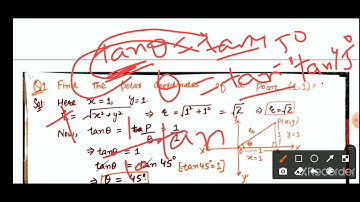 tanθ = tan45°
θ = tan⁻¹ tan45°
Q1. Find the polar coordinates of the point (1,1).
Sol: Here x=1, y=1.
r = √x²+y² ⇒ r = √1²+1² = √2 ⇒ r=√2
Now, tanθ = P = 1
⇒ tanθ = 1
tanθ = tan45° [tan45°=1]
⇒ θ = 45°
tan
P(x,y)
r
y=1
θ
x=1
X
Y'